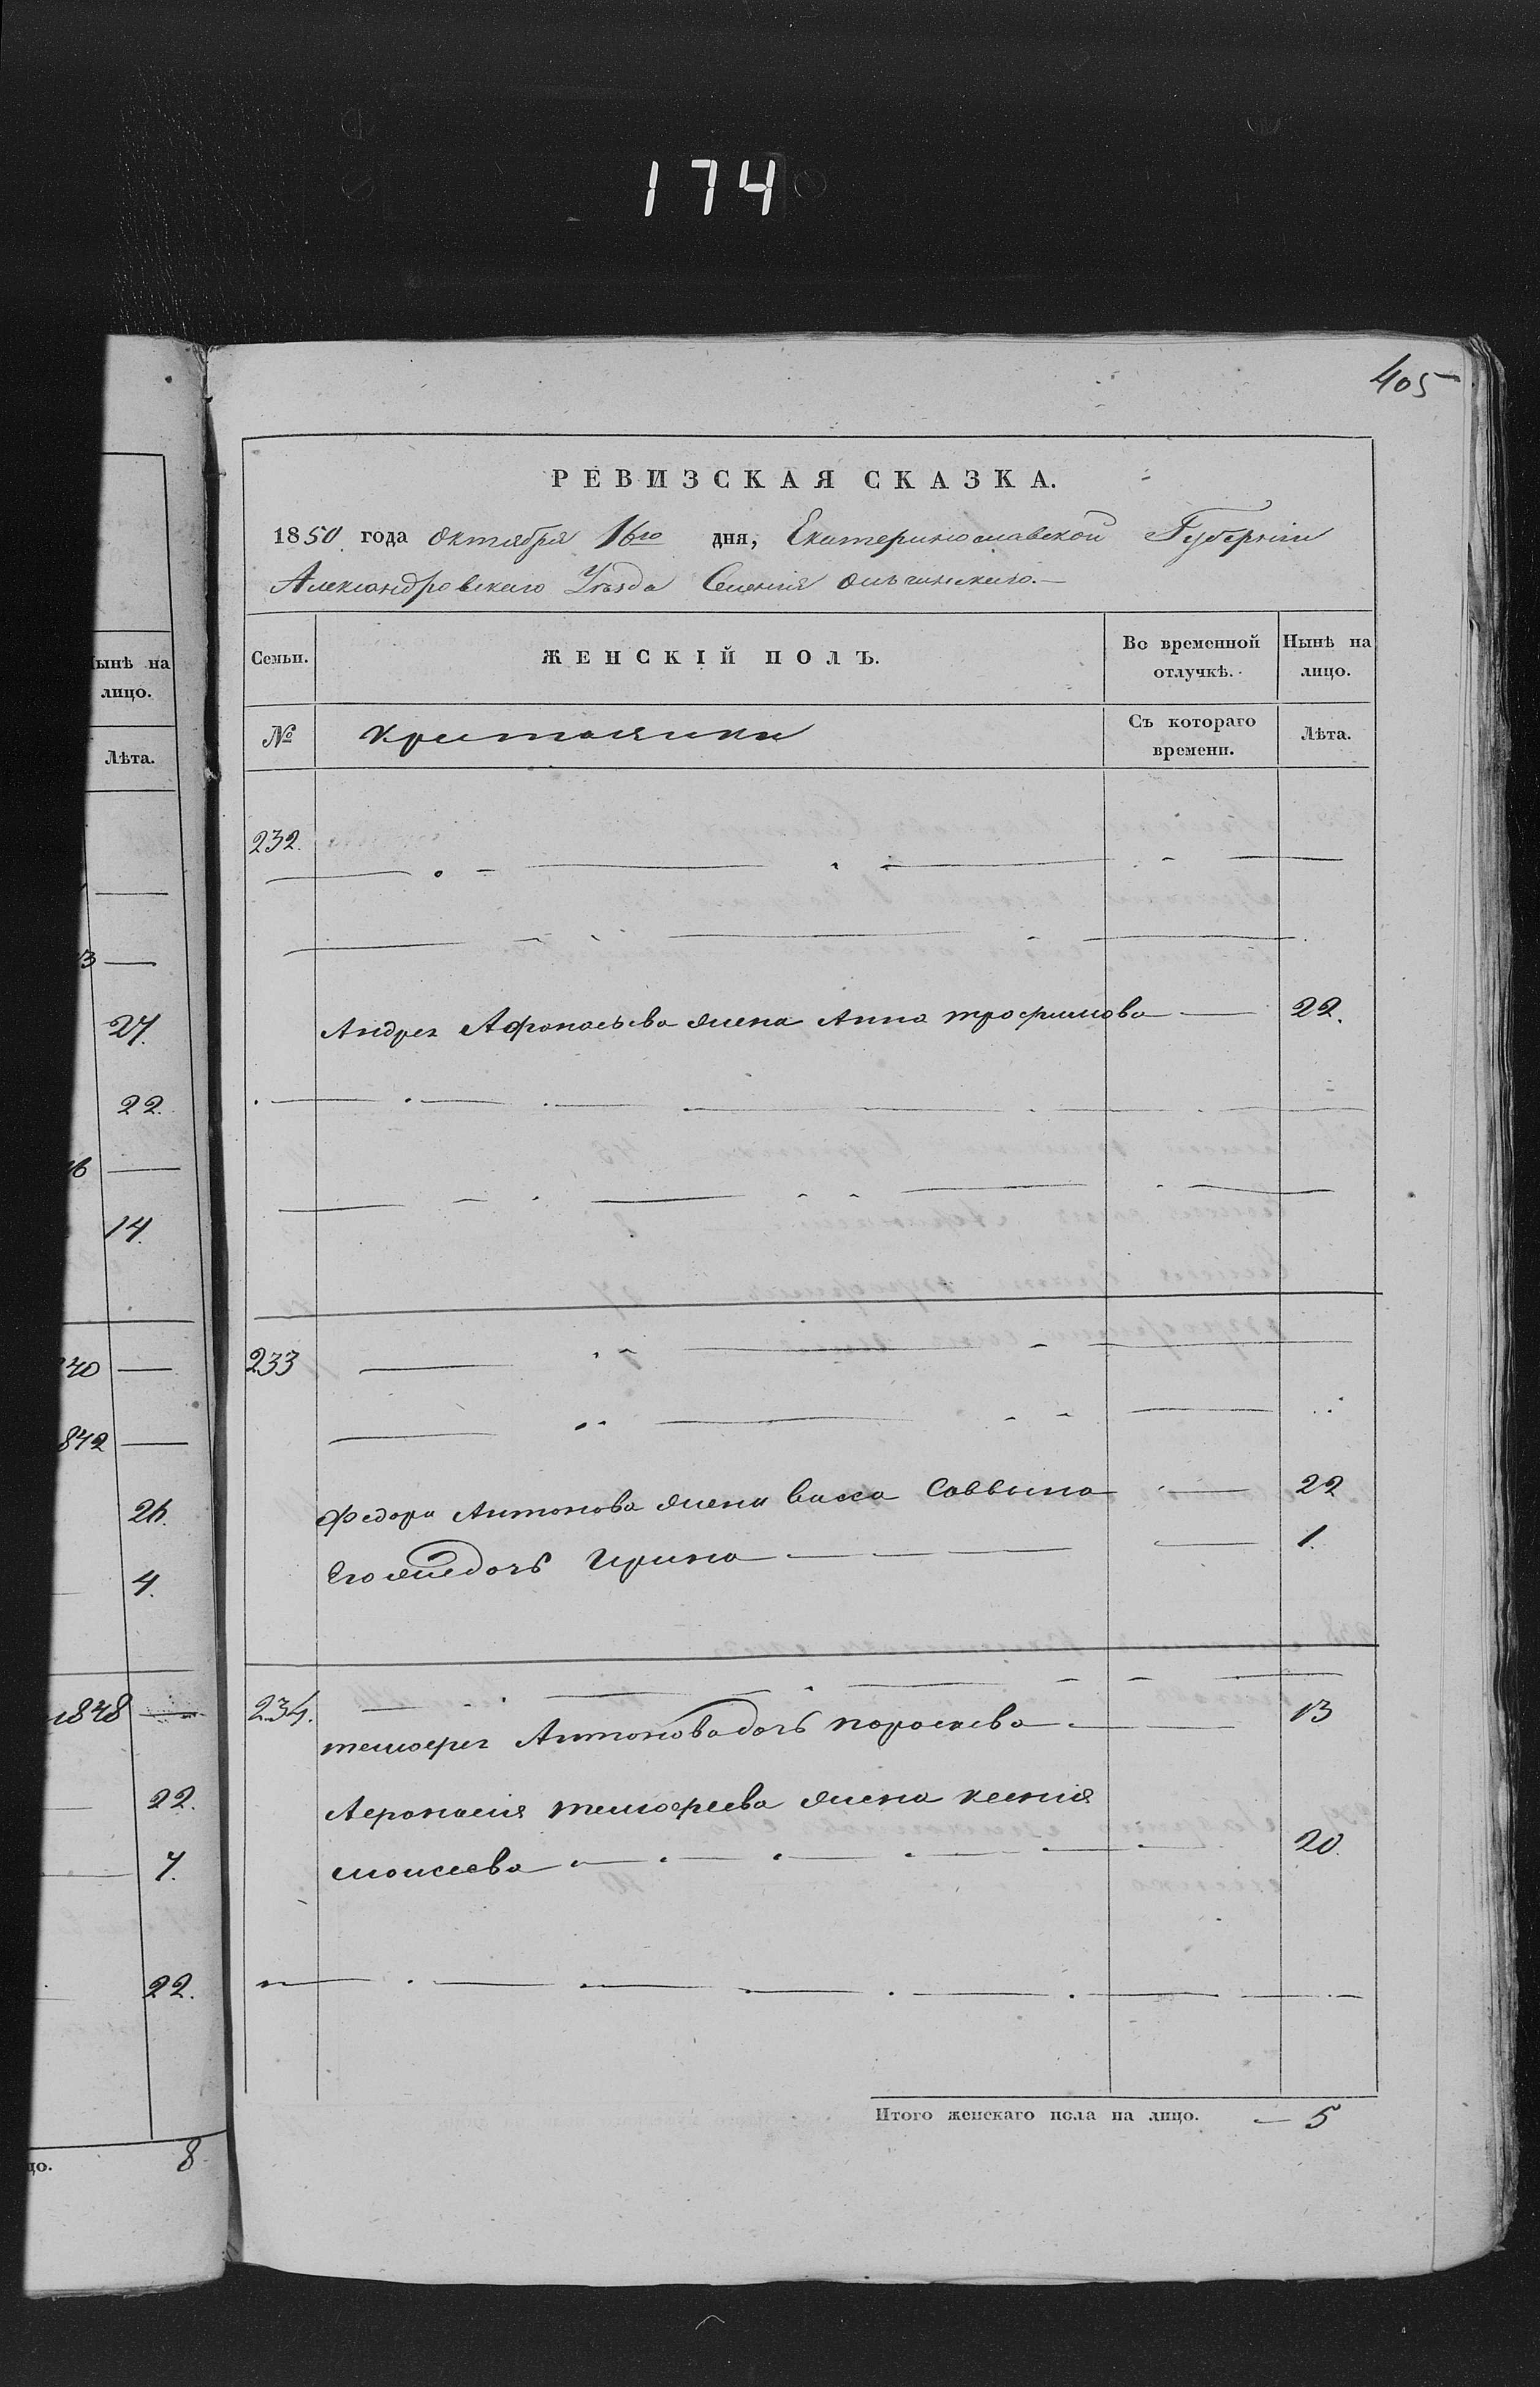 174
405
РЕВИЗСКАЯ СКАЗКА.
1850 года Октября 16го дня, Екатеринославской Губерніи
Александровскаго Уѣзда Селенія
Семьи. ЖЕНСКІЙ ПОЛЪ. Во временной отлучкѣ. Нынѣ на лицо.
№ Съ котораго времени. Лѣта.
232.
Андрея Афонасьева жена Анна трофимова 22.
233
Федора Антонова жена васса Саввина 22
Его дочь Ирина 1.
234.
тимофея Антонова дочь пораскева 13
Афонасія тимофеева жена ксенія
моисеева 20.
Итого женскаго пола на лицо. 5
Нынѣ на
лицо.
Лѣта.
27.
22.
14.
40
842
26.
4.
1848
22.
7.
22.
8